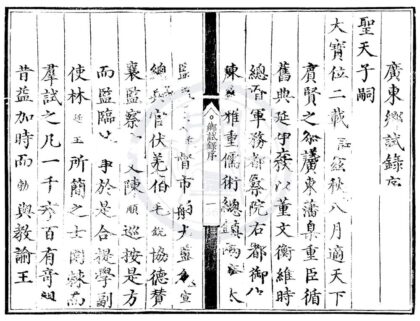 廣東鄉試錄序
聖天子嗣
大寶位二載 秋八月適天下
賓賢之 廣東藩臬重臣循
舊典延 以董文衡維時
總督軍務都察院右都御
陳 雅重儒術總鎮 太
鄉試錄序 一
監 督市舶太監 宣
總兵官伏羌伯毛銳協德贊
襄監察 陳 順巡按是方
而監臨 事於是合提學副
使林廷玉所簡之士 而
羣試之凡一千 百有奇
昔益加時而 與教諭王